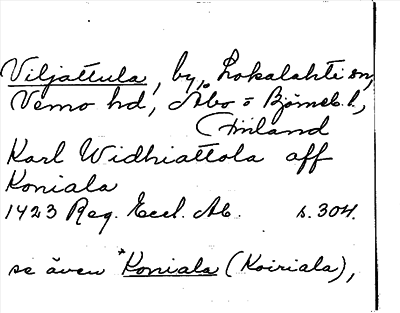 Viljattula, by, Lokalahti sn,
Vemo hd, Åbo o Björneb. l.,
Finland
Karl Widhiattola aff
Koniala
1423 Reg. Eccl. Ab. s. 304.
se även *Koniala (Koiriala),